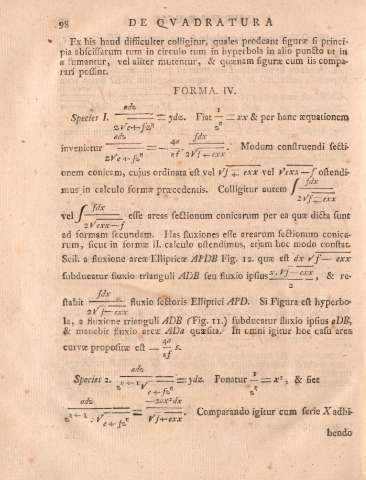 98 DE QVADRATURA
Ex his haud difficulter colligitur, quales prodeant figuræ si princi-
pia abscissarum tum in circulo tum in hyperbola in alio puncto ut in
a sumantur, vel aliter mutentur, & quænam figuræ cum iis compa-
rari possint.
FORMA. IV.
Species I. adz / 2√e+fz^n = ydz. Fiat 1/z^n = xx & per hanc æquationem
invenietur adz / 2√e+fz^n = − 4a/nf fdx / 2√f+exx. Modum construendi secti-
onem conicam, cujus ordinata est vel √f+exx vel √exx−f ostendi-
mus in calculo formæ præcedentis. Colligitur autem ∫ fdx / 2√f+exx
vel ∫ fdx / 2√exx−f esse areas sectionum conicarum per ea quæ dicta sunt
ad formam secundam. Has fluxiones esse arearum sectionum conica-
rum, sicut in formæ II. calculo ostendimus, etjam hoc modo constat.
Scil. a fluxione areæ Ellipticæ APDB Fig. 12. quæ est dx √f−exx
subducatur fluxio trianguli ADB seu fluxio ipsius x.√f−exx / 2, & re-
stabit fdx / 2√f−exx fluxio sectoris Elliptici APD. Si Figura est hyperbo-
la, a fluxione trianguli ADB (Fig. 11.) subducatur fluxio ipsius aDB,
& manebit fluxio areæ ADa quæsita. In omni igitur hoc casu area
curvæ propositæ est − 4a/nf s.
Species 2. adz / z^n+1 √e+fz^n = ydz. Ponatur 1/z^n = x², & fiet
adz / z^n+1.√e+fz^n = −2ax²dx / √f+exx. Comparando igitur cum serie X adhi-
bendo